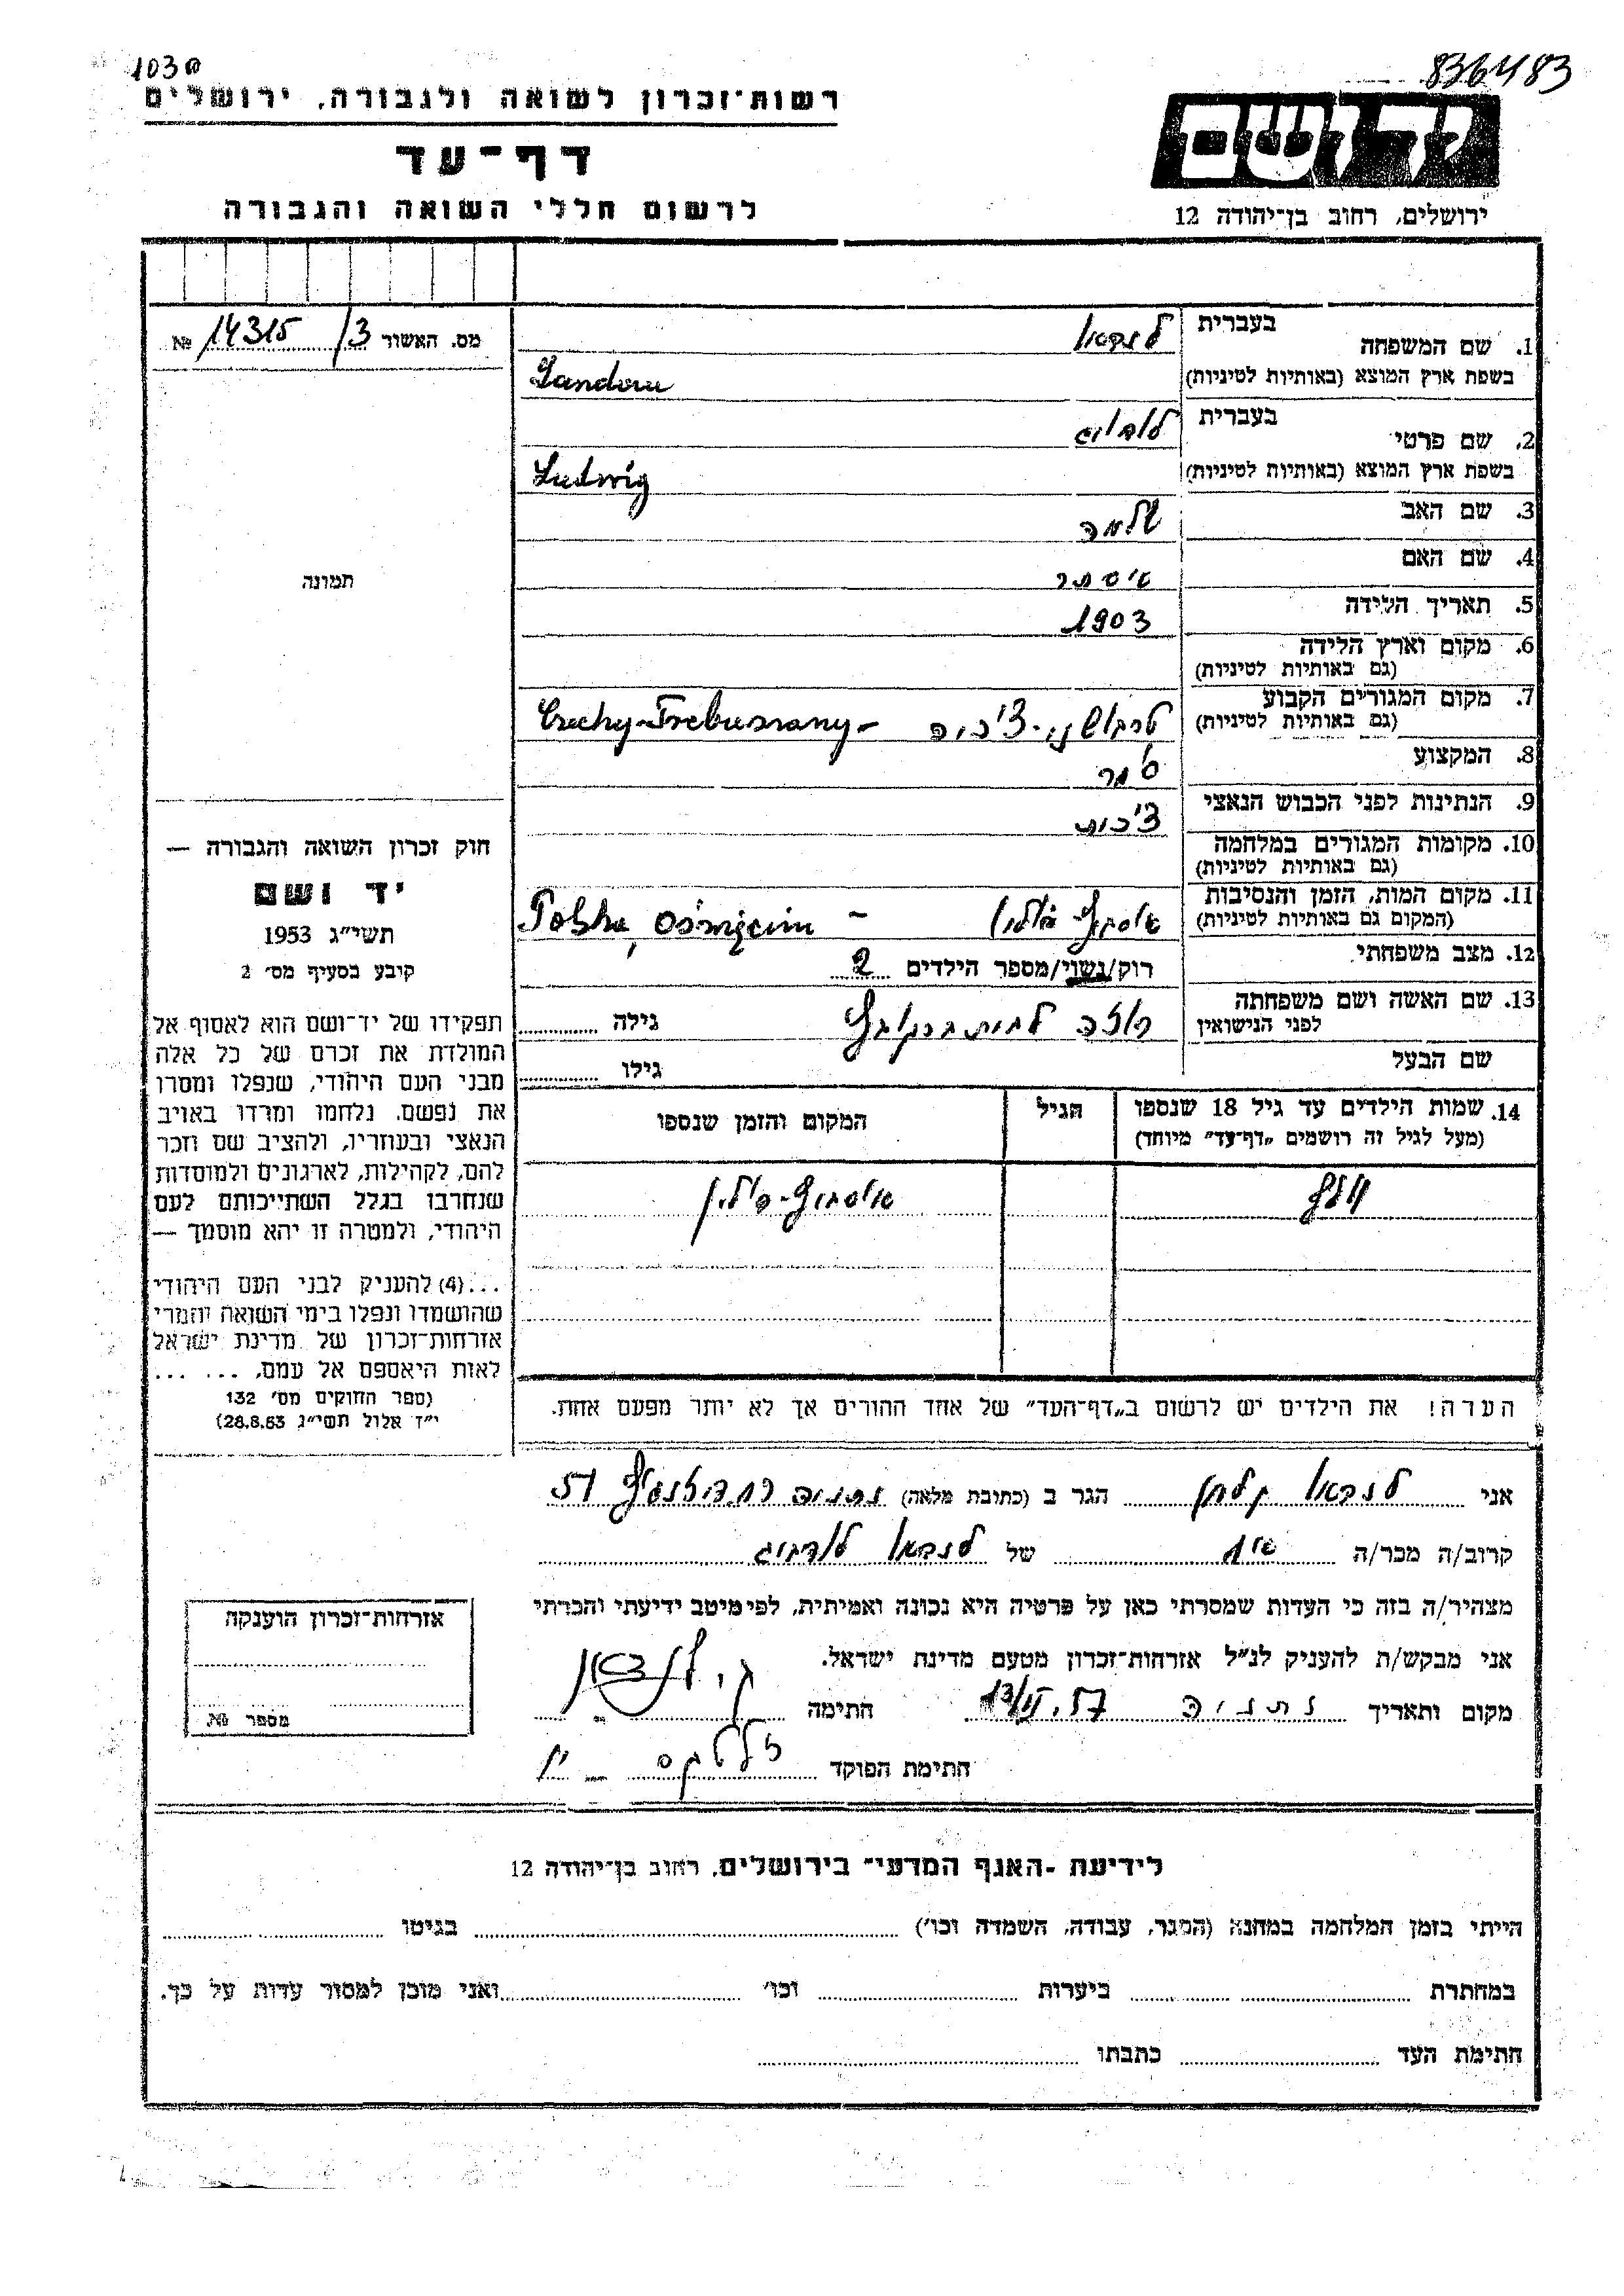 1030
836483
רשות־זכרון לשואה ולגבורה, ירושלים
דף־עד
לרשום חללי השואה והגבורה
יד ושם
ירושלים, רחוב בן־יהודה 12
מס. האשור 14315/3 №
תמונה
1. שם המשפחה
בעברית לנדאו
בשפת ארץ המוצא (באותיות לטיניות) Landau
2. שם פרטי
בעברית לודויג
בשפת ארץ המוצא (באותיות לטיניות) Ludwig
3. שם האב שלמה
4. שם האם איסתר
5. תאריך הלידה 1903
6. מקום וארץ הלידה
(גם באותיות לטיניות)
7. מקום המגורים הקבוע טרבושני-צ'כיה - Czechy-Trebuszany
(גם באותיות לטיניות)
8. המקצוע
9. הנתינות לפני הכבוש הנאצי צ'כית
10. מקומות המגורים במלחמה
(גם באותיות לטיניות)
11. מקום המות, הזמן והנסיבות אושביץ פולין - Polska, Oświęcim
(המקום גם באותיות לטיניות)
12. מצב משפחתי רוק/נשוי/מספר הילדים 2
13. שם האשה ושם משפחתה רוזה לבית ברקוביץ גילה
לפני הנישואין
שם הבעל גילו
14. שמות הילדים עד גיל 18 שנספו
(מעל לגיל זה רושמים „דף־עד״ מיוחד)
הגיל
המקום והזמן שנספו
אושביץ-פולין
הערה! את הילדים יש לרשום ב„דף־העד״ של אחד ההורים אך לא יותר מפעם אחת.
חוק זכרון השואה והגבורה —
יד ושם
תשי״ג 1953
קובע בסעיף מס׳ 2
תפקידו של יד־ושם הוא לאסוף אל
המולדת את זכרם של כל אלה
מבני העם היהודי, שנפלו ומסרו
את נפשם, נלחמו ומרדו באויב
הנאצי ובעוזריו, ולהציב שם וזכר
להם, לקהילות, לארגונים ולמוסדות
שנחרבו בגלל השתייכותם לעם
היהודי, ולמטרה זו יהא מוסמך —
...(4) להעניק לבני העם היהודי
שהושמדו ונפלו בימי השואה והמרי
אזרחות־זכרון של מדינת ישראל
לאות היאספם אל עמם. ... ...
(ספר החוקים מס׳ 132
י״ז אלול תשי״ג 28.8.53)
אני לנדאו הגר ב (כתובת מלאה) נתניה רח דיזנגוף 51
קרוב/ה מכר/ה אח של לנדאו לודויג
מצהיר/ה בזה כי העדות שמסרתי כאן על פרטיה היא נכונה ואמיתית, לפי מיטב ידיעתי והכרתי
אני מבקש/ת להעניק לנ״ל אזרחות־זכרון מטעם מדינת ישראל.
מקום ותאריך נתניה חתימה
חתימת הפוקד
אזרחות־זכרון הוענקה
מספר №
לידיעת -האגף המדעי- בירושלים, רחוב בן־יהודה 12
הייתי בזמן המלחמה במחנא (הסגר, עבודה, השמדה וכו׳) בגיטו
במחתרת ביערות וכו׳ ואני מוכן למסור עדות על כך.
חתימת העד כתבתו